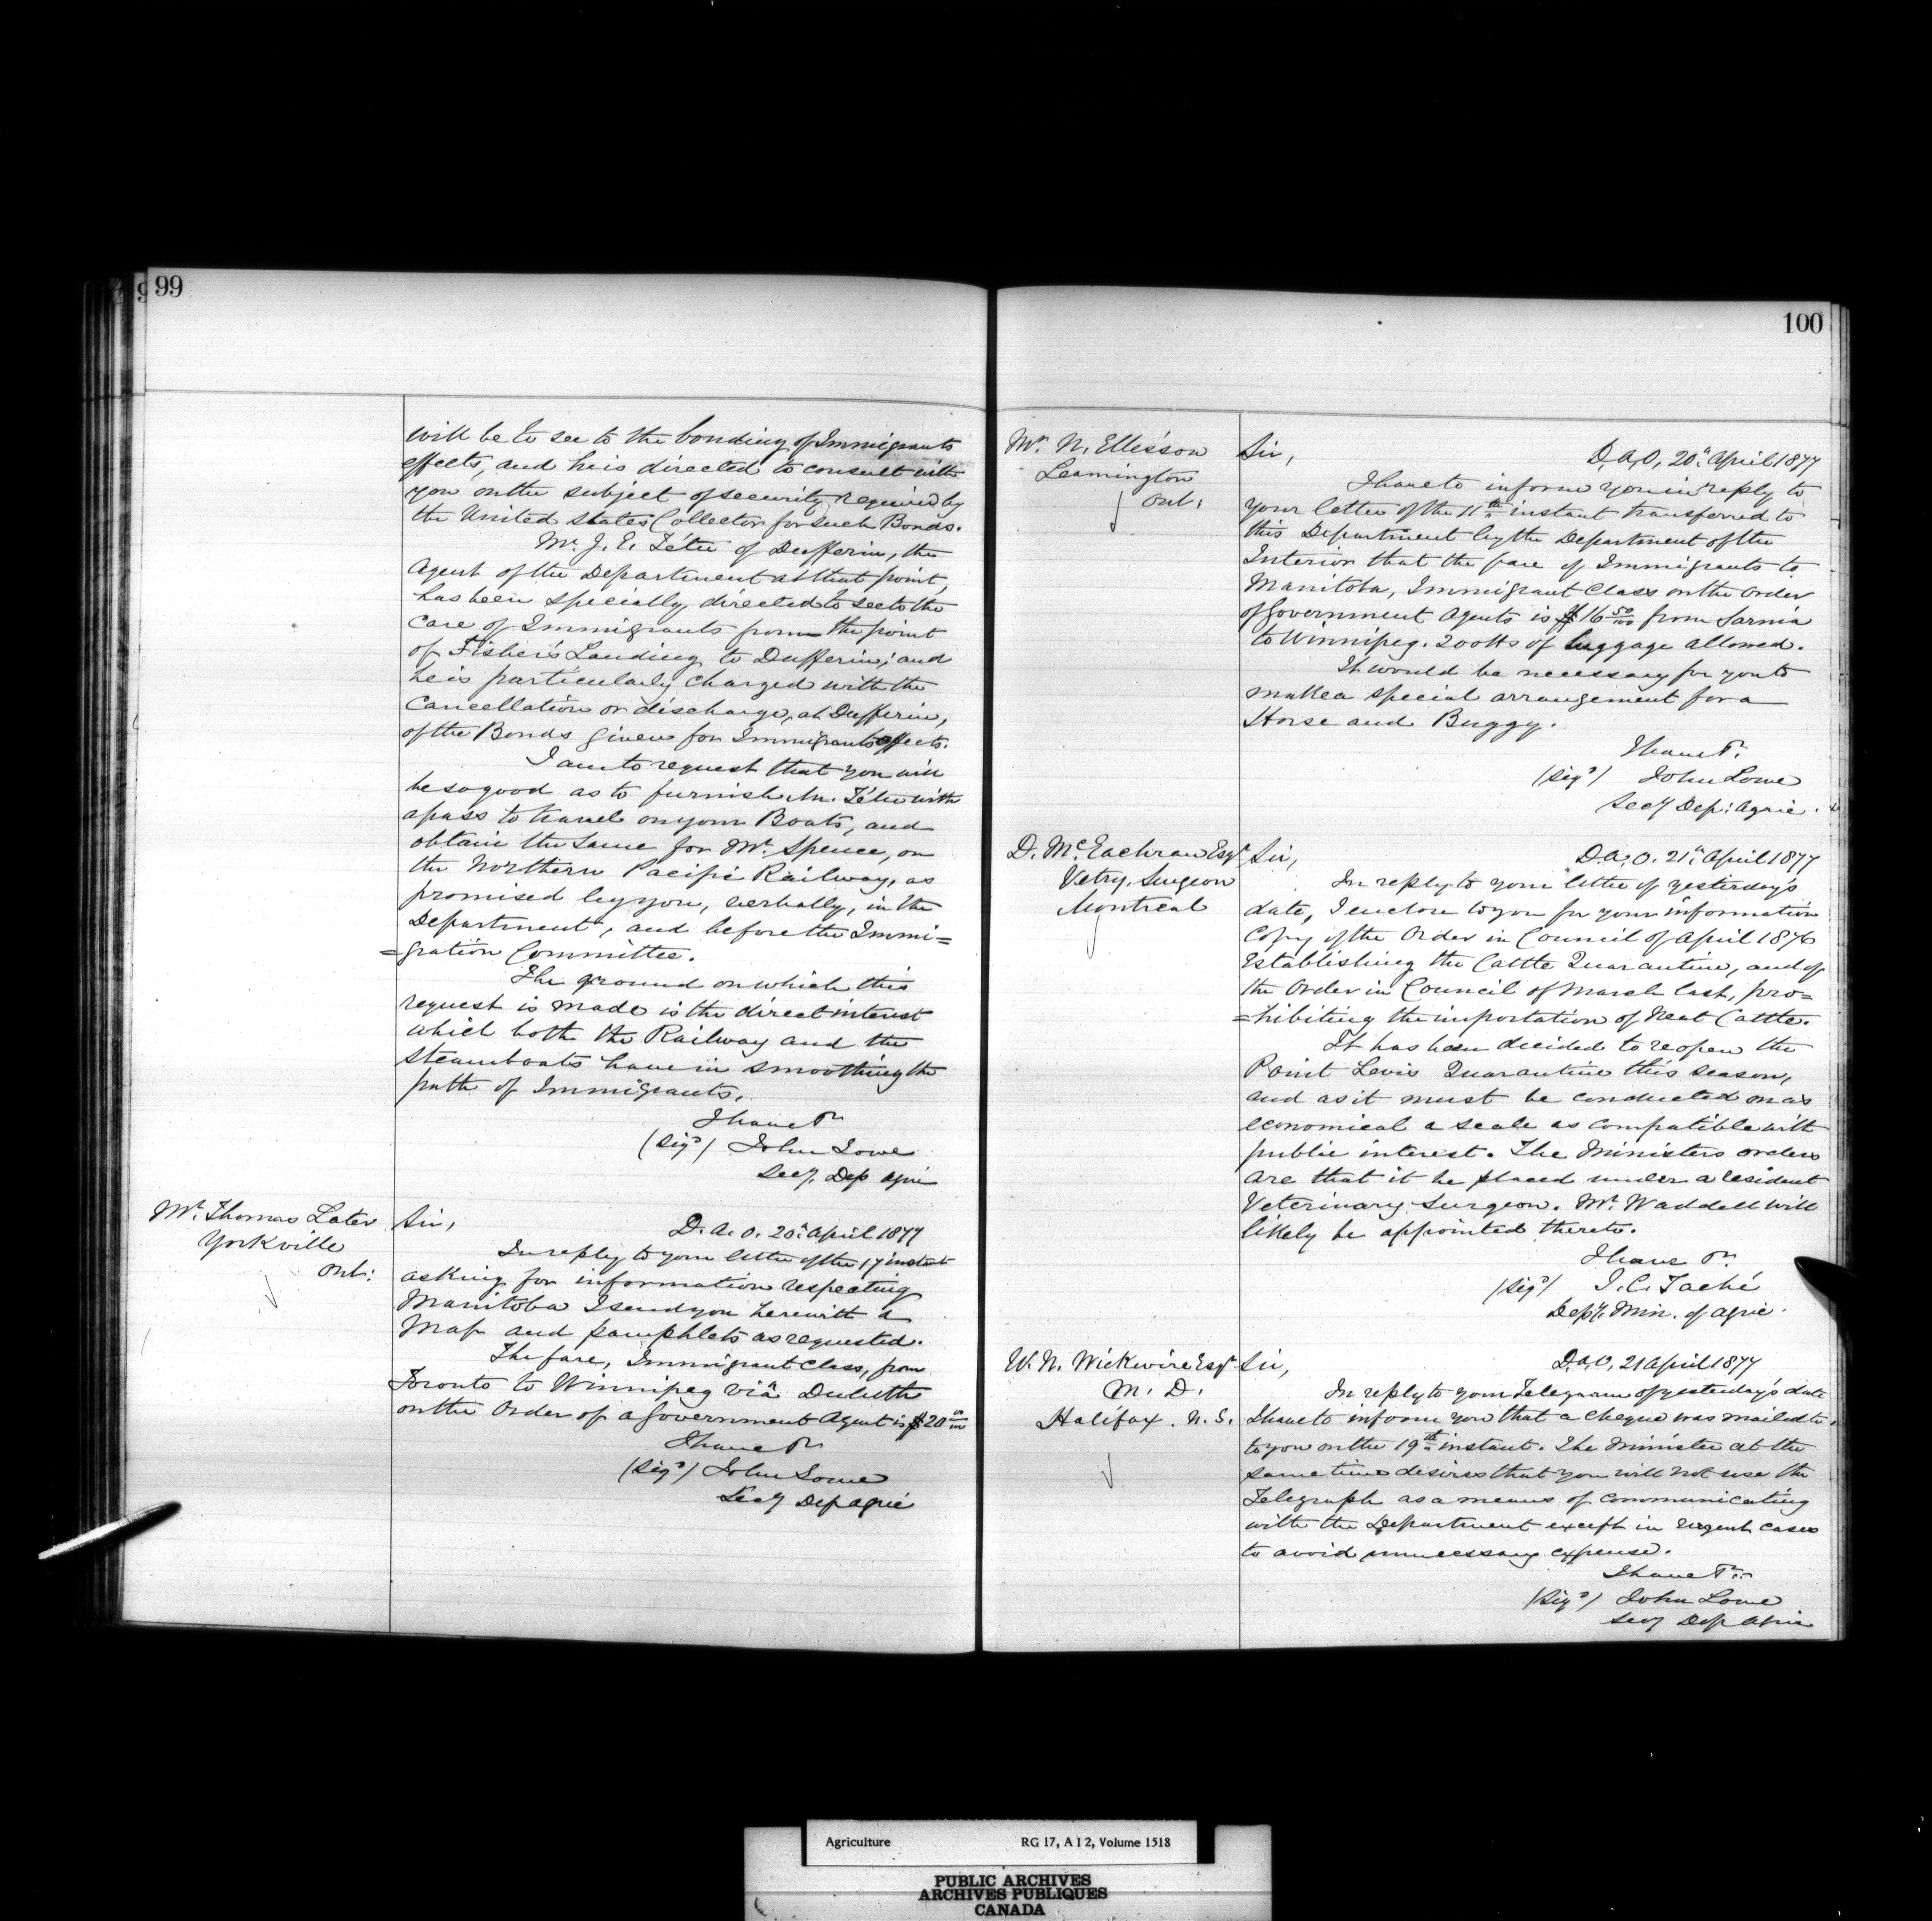 99
will be to see to the bonding of Immigrants
effects, and he is directed to consult with
you on the subject of security required by
the United States Collector for such Bonds.
Mr. J. E. Tétu of Dufferin, the
Agent of the Department at that point,
has been specially directed to see to the
care of Immigrants from the point
of Fisher's Landing to Dufferin; and
he is particularly charged with the
Cancellation or discharge, at Dufferin,
of the Bonds given for Immigrants effects.
I am to request that you will
be so good as to furnish Mr. Tétu with
a pass to travel on your Boats, and
obtain the same for Mr. Spence, on
the Northern Pacific Railway, as
promised by you, verbally, in the
Department, and before the Immi=
=gration Committee.
The ground on which this
request is made is the direct interest
which both the Railway and the
Steamboats have in smoothing the
path of Immigrants.
I have &c
(Sigd) John Lowe
Secy. Dep Agri
Mr. Thomas Later
Yorkville
Ont:
Sir,
D. A. O. 20th April 1877
In reply to your letter of the 17 instant
asking for information respecting
Manitoba I send you herewith a
Map and pamphlets as requested.
The fare, Immigrant Class, from
Toronto to Winnipeg viâ Duluth
on the Order of a Government Agent is $20 00/100
I have &c
(Sigd) John Lowe
Secy Dep Agric
100
Mr. N. Ellisson
Leamington
Ont:
Sir,
D. A. O. 20th April 1877
I have to inform you in reply to
your letter of the 11th instant transferred to
this Department by the Department of the
Interior that the fare of Immigrants to
Manitoba, Immigrant Class on the order
of Government Agents is $16 50/100 from Sarnia
to Winnipeg. 200 lbs of luggage allowed.
It would be necessary for you to
make a special arrangement for a
Horse and Buggy.
I have &c.
(Sigd) John Lowe
Secy Dep: Agric.
D. McEachran Esqr
Vetry. Surgeon
Montreal
Sir,
D. A. O. 21st April 1877
In reply to your letter of yesterday's
date, I enclose to you for your information
Copy of the Order in Council of April 1876
Establishing the Cattle Quarantine, and of
the Order in Council of March last, pro=
=hibiting the importation of Neat Cattle.
It has been decided to reopen the
Point Levis Quarantine this season,
and as it must be conducted on as
economical a scale as compatible with
public interest. The Ministers orders
are that it be placed under a resident
Veterinary Surgeon. Mr. Waddell will
likely be appointed thereto.
I have &c.
(Sigd) J. C. Taché
Depy. Min. of Agric.
W. N. Wickwire Esqr
M. D.
Halifax. N. S.
Sir,
D. A. O. 21 April 1877
In reply to your Telegram of yesterday's date
I have to inform you that a cheque was mailed to
to you on the 19th instant. The Minister at the
same time desires that you will not use the
Telegraph as a means of communicating
with the Department except in urgent cases
to avoid unnecessary expense.
I have &c.
(Sigd) John Lowe
Secy Dep Agric
Agriculture RG 17, A I 2, Volume 1518
PUBLIC ARCHIVES
ARCHIVES PUBLIQUES
CANADA